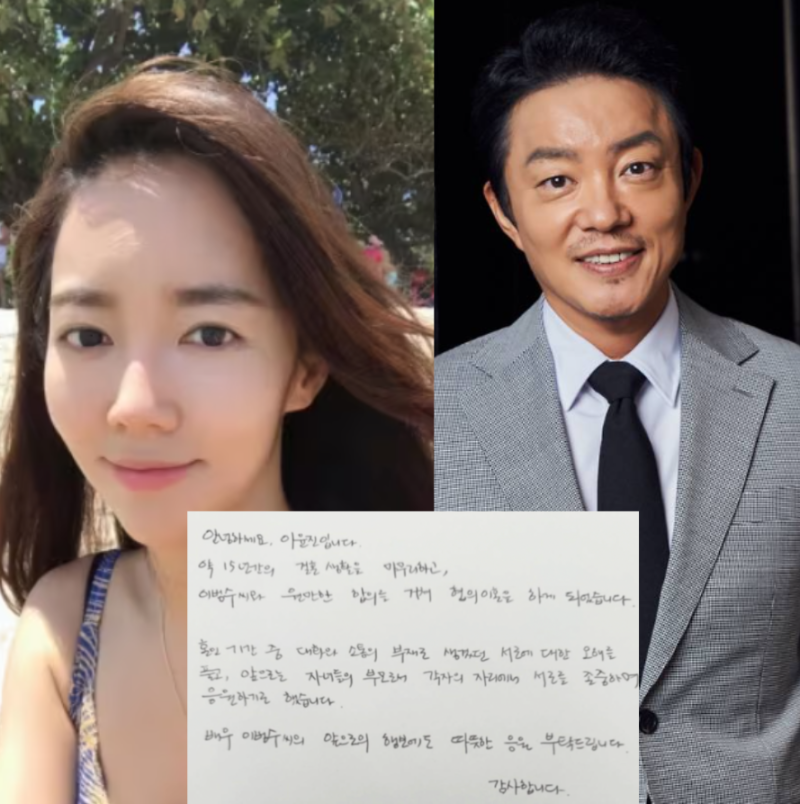 안녕하세요. 이윤진입니다.
약 15년간의 결혼 생활을 마무리하고,
이범수씨와 원만한 합의를 거쳐 협의이혼을 하게 되었습니다.
혼인 기간 중 대화와 소통의 부재로 생겼던 서로에 대한 오해를
풀고, 앞으로는 자녀들의 부모로서 각자의 자리에서 서로를 존중하며
응원하기로 했습니다.
배우 이범수씨의 앞으로의 행보에도 따뜻한 응원 부탁드립니다.
감사합니다.